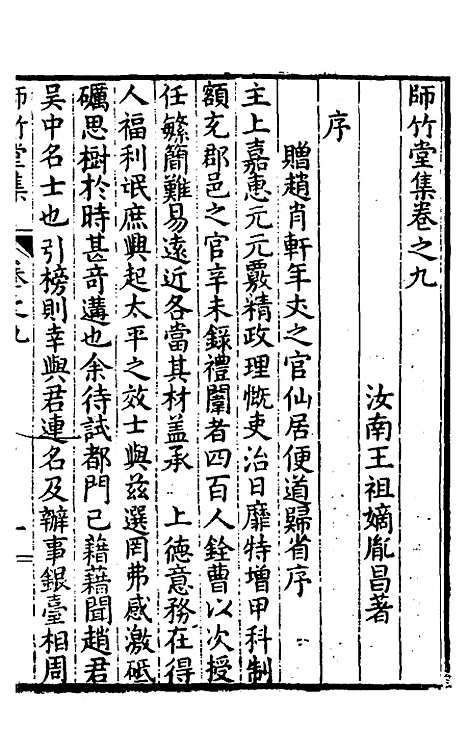 師竹堂集卷之九
汝南王祖嫡胤昌著
序
贈趙肖軒年丈之官仙居便道歸省序
主上嘉惠元元覈精政理慨吏治日靡特增甲科制
額充郡邑之官辛未錄禮闈者四百人銓曹以次授
任繁簡難易遠近各當其材盖承　上德意務在得
人福利氓庶興起太平之效士與兹選罔弗感激砥
礪思樹於時甚奇遘也余待試都門已藉藉聞趙君
吳中名士也引榜則幸與君連名及辦事銀臺相周
師竹堂集　卷之九　一